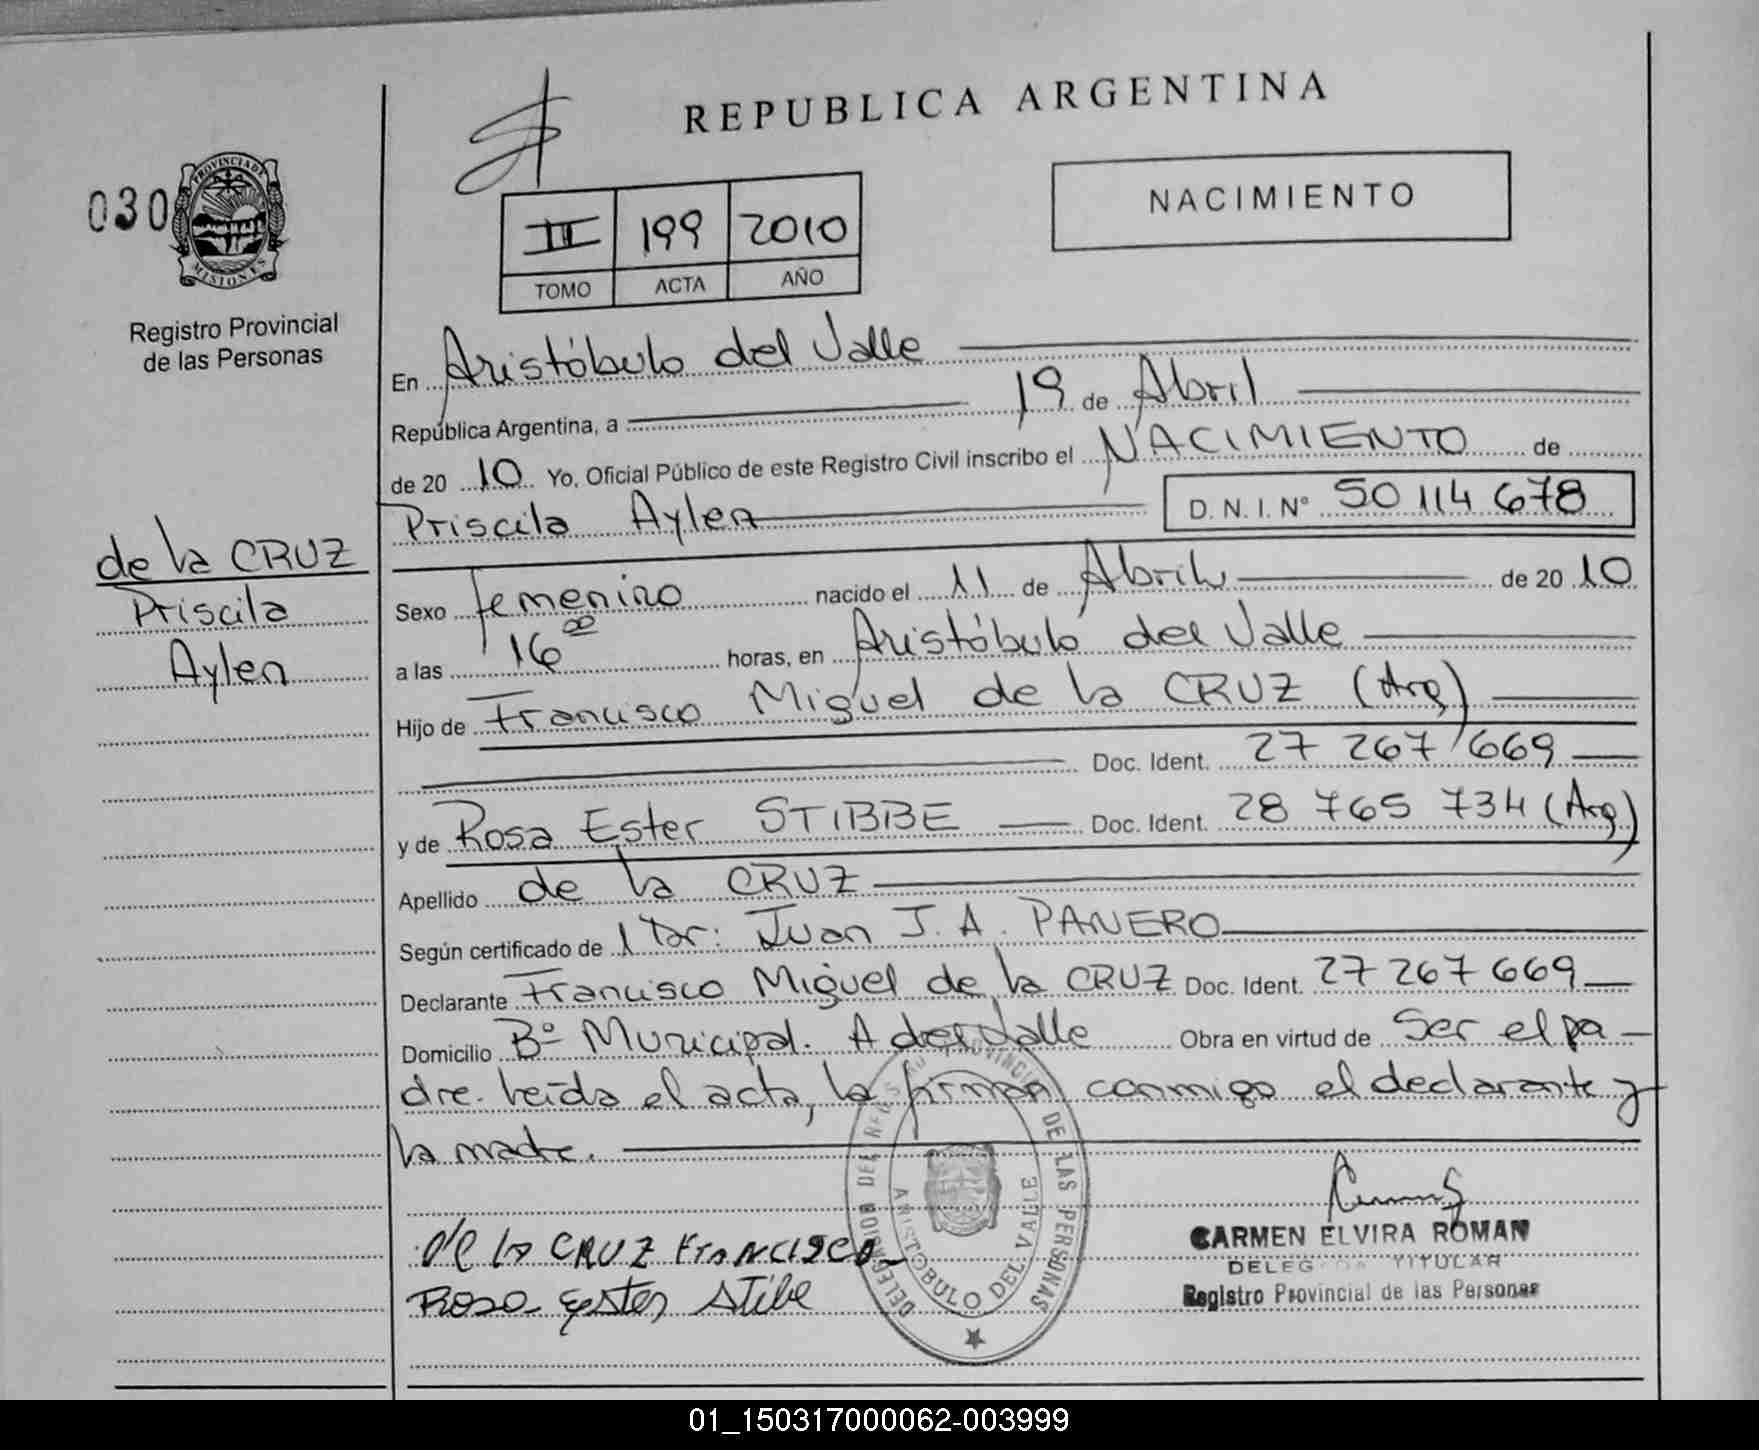 REPUBLICA ARGENTINA
030
PROVINCIA DE
MISIONES
Registro Provincial
de las Personas
III 199 2010
TOMO ACTA AÑO
NACIMIENTO
En Aristóbulo del Valle
República Argentina, a 19 de Abril
de 20 10 Yo, Oficial Público de este Registro Civil inscribo el NACIMIENTO de
Priscila Aylen D. N. I. Nº 50 114 678
de la CRUZ
Priscila
Aylen
Sexo femenino nacido el 11 de Abril de 20 10
a las 16 00 horas, en Aristóbulo del Valle
Hijo de Francisco Miguel de la CRUZ (Arg)
Doc. Ident. 27 267 669
y de Rosa Ester STIBBE Doc. Ident. 28 765 734 (Arg.)
Apellido de la CRUZ
Según certificado de 1 Dr: Juan J. A. PANERO
Declarante Francisco Miguel de la CRUZ Doc. Ident. 27 267 669
Domicilio Bº Municipal. A del Valle Obra en virtud de Ser el pa-
dre. leída el acta, la firman conmigo el declarante y
la madre.
DELEGACION DEL REGISTRO PROVINCIAL DE LAS PERSONAS
ARISTOBULO DEL VALLE
de la CRUZ FRANCISCO
Rosa Ester Stibe
CARMEN ELVIRA ROMAN
DELEGADA TITULAR
Registro Provincial de las Personas
01_150317000062-003999